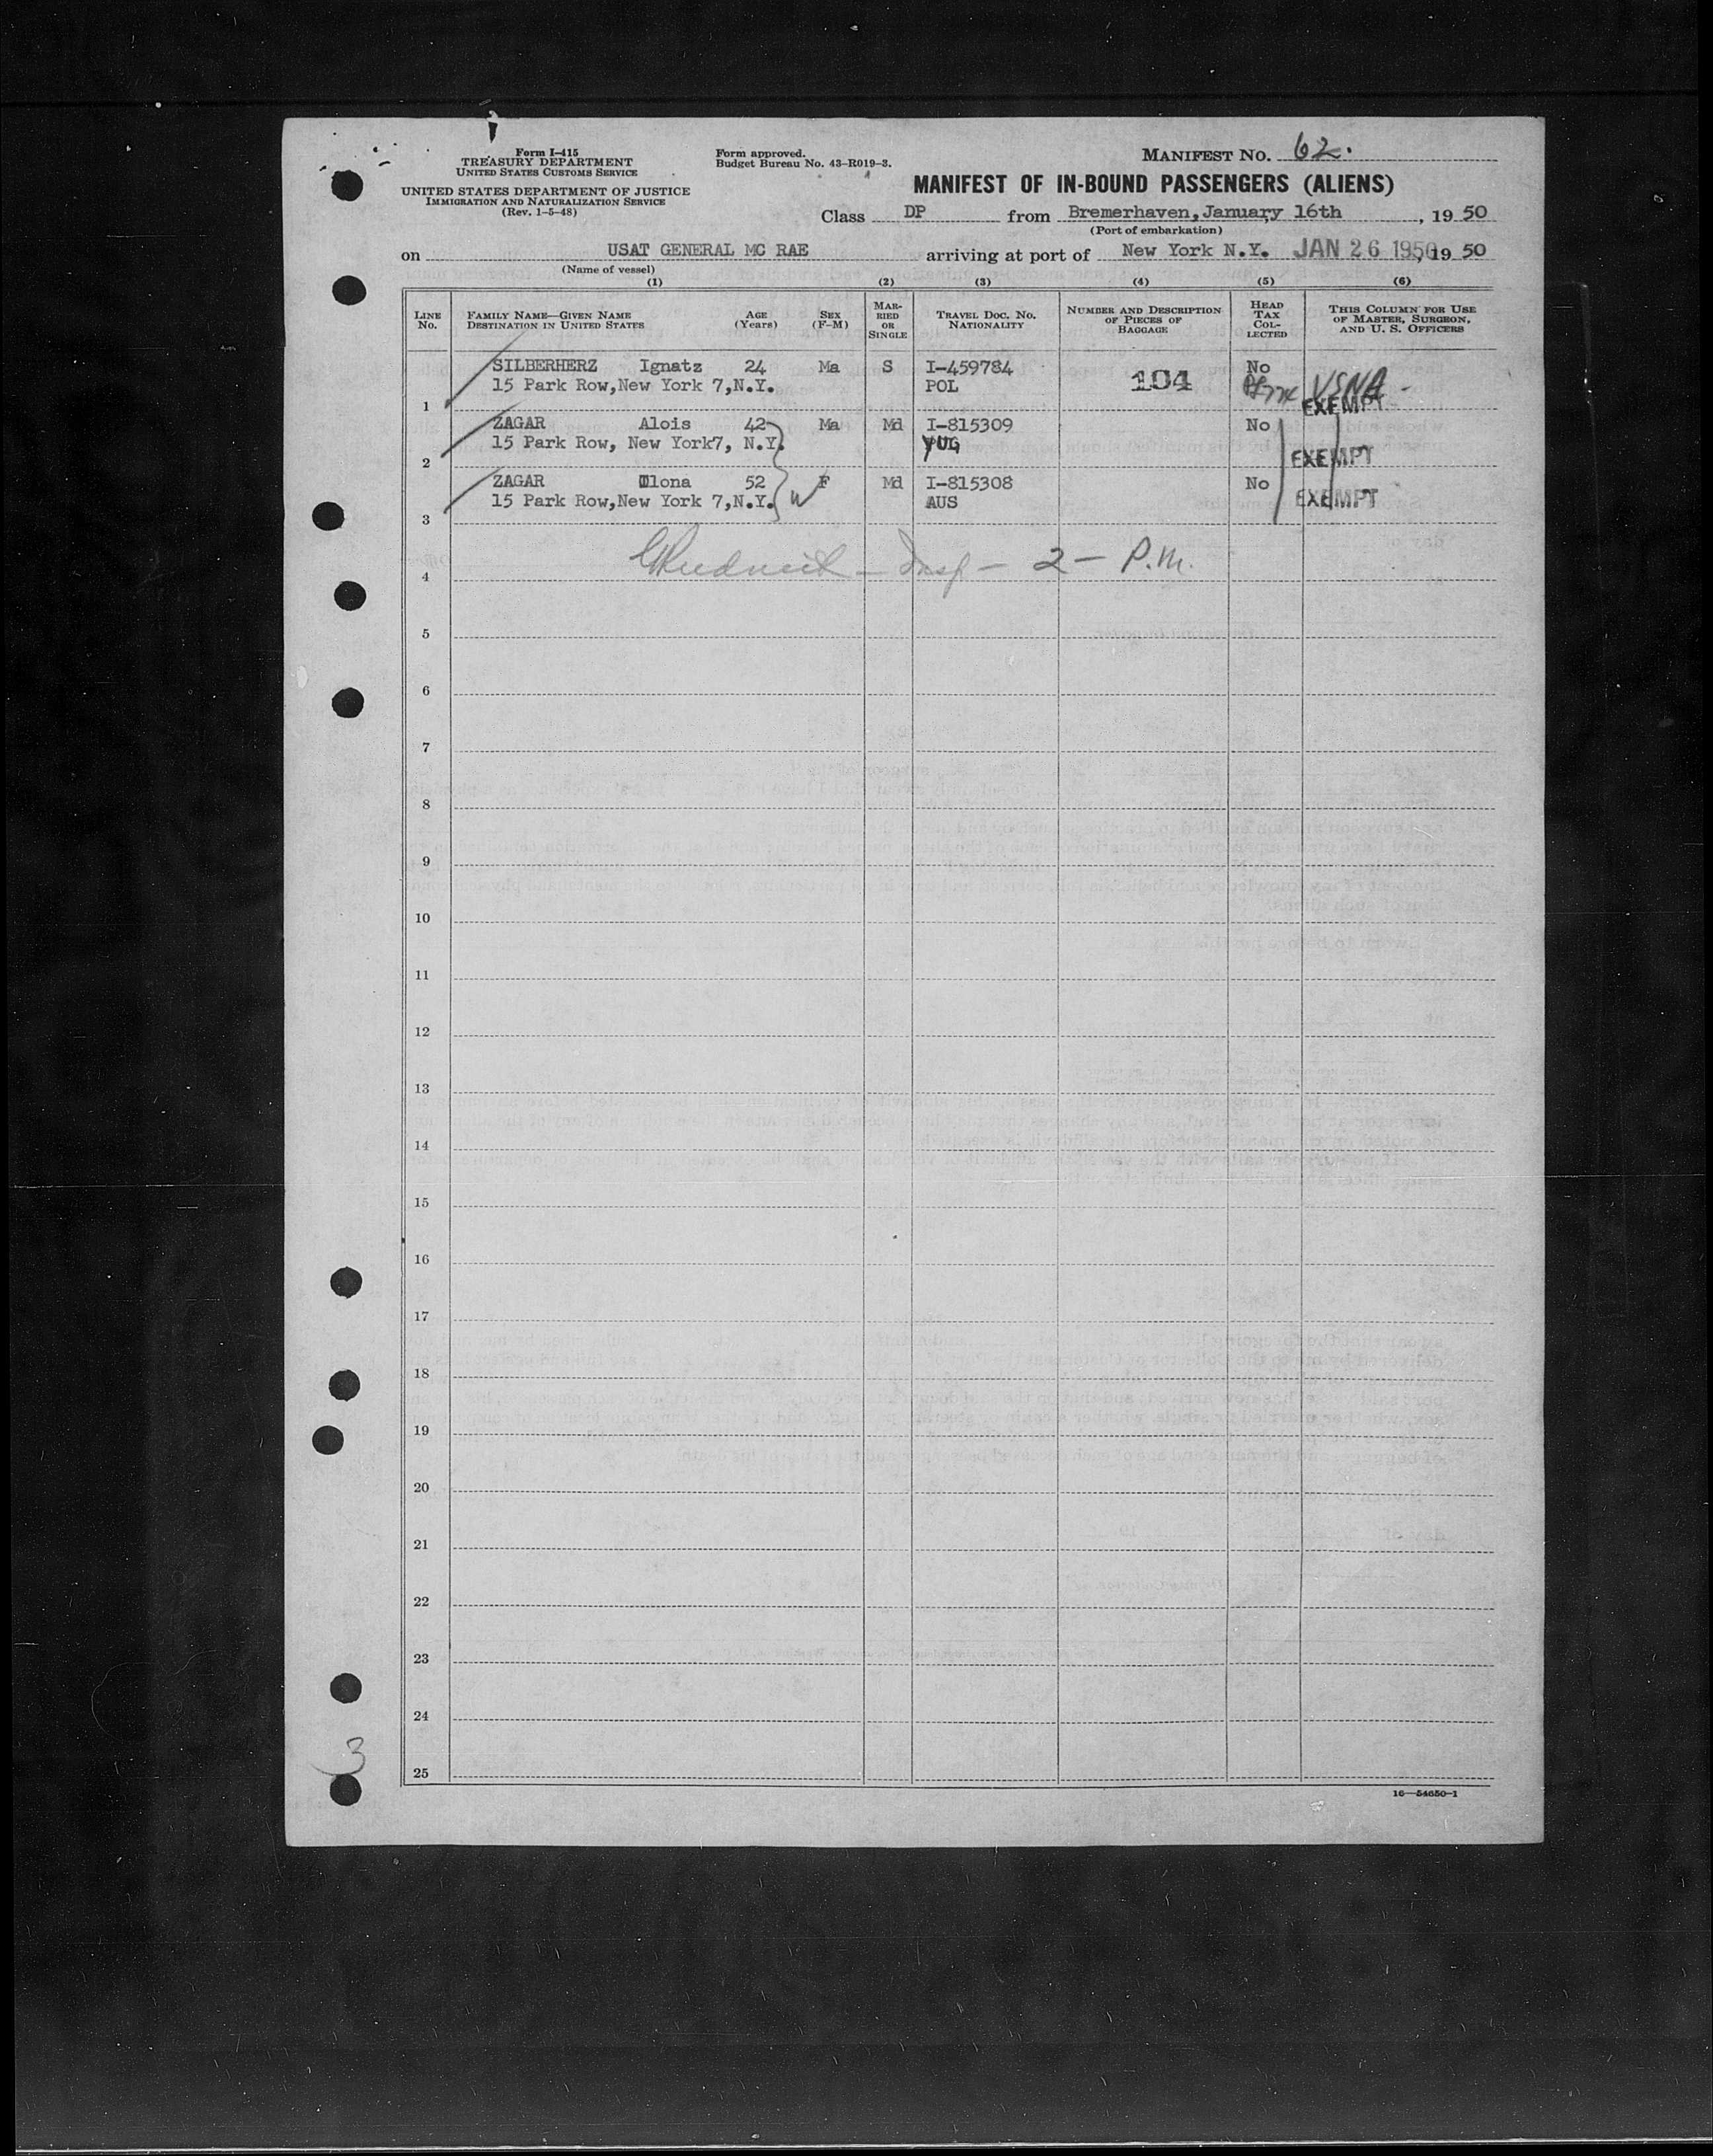 Form I-415
TREASURY DEPARTMENT
UNITED STATES CUSTOMS SERVICE
UNITED STATES DEPARTMENT OF JUSTICE
IMMIGRATION AND NATURALIZATION SERVICE
(Rev. 1-5-48)
Form approved.
Budget Bureau No. 43-R019-3.
MANIFEST NO. 62.
MANIFEST OF IN-BOUND PASSENGERS (ALIENS)
Class DP from Bremerhaven, January 16th, 19 50
(Port of embarkation)
on USAT GENERAL MC RAE arriving at port of New York N.Y. JAN 26 1950, 19 50
(Name of vessel)
(1) (2) (3) (4) (5) (6)
LINE NO. FAMILY NAME—GIVEN NAME DESTINATION IN UNITED STATES AGE (Years) SEX (F-M) MARRIED OR SINGLE TRAVEL DOC. NO. NATIONALITY NUMBER AND DESCRIPTION OF PIECES OF BAGGAGE HEAD TAX COLLECTED THIS COLUMN FOR USE OF MASTER, SURGEON, AND U. S. OFFICERS
SILBERHERZ Ignatz 24 Ma S I-459784 No
15 Park Row,New York 7,N.Y. POL 104 USNA -
1 EXEMPT
ZAGAR Alois 42 Ma Md I-815309 No
15 Park Row, New York7, N.Y. YUG
2 EXEMPT
ZAGAR Ilona 52 F Md I-815308 No
15 Park Row,New York 7,N.Y. W AUS EXEMPT
3
Insp - 2 - P.M.
4
5
6
7
8
9
10
11
12
13
14
15
16
17
18
19
20
21
22
23
24
3
25
16—54650-1